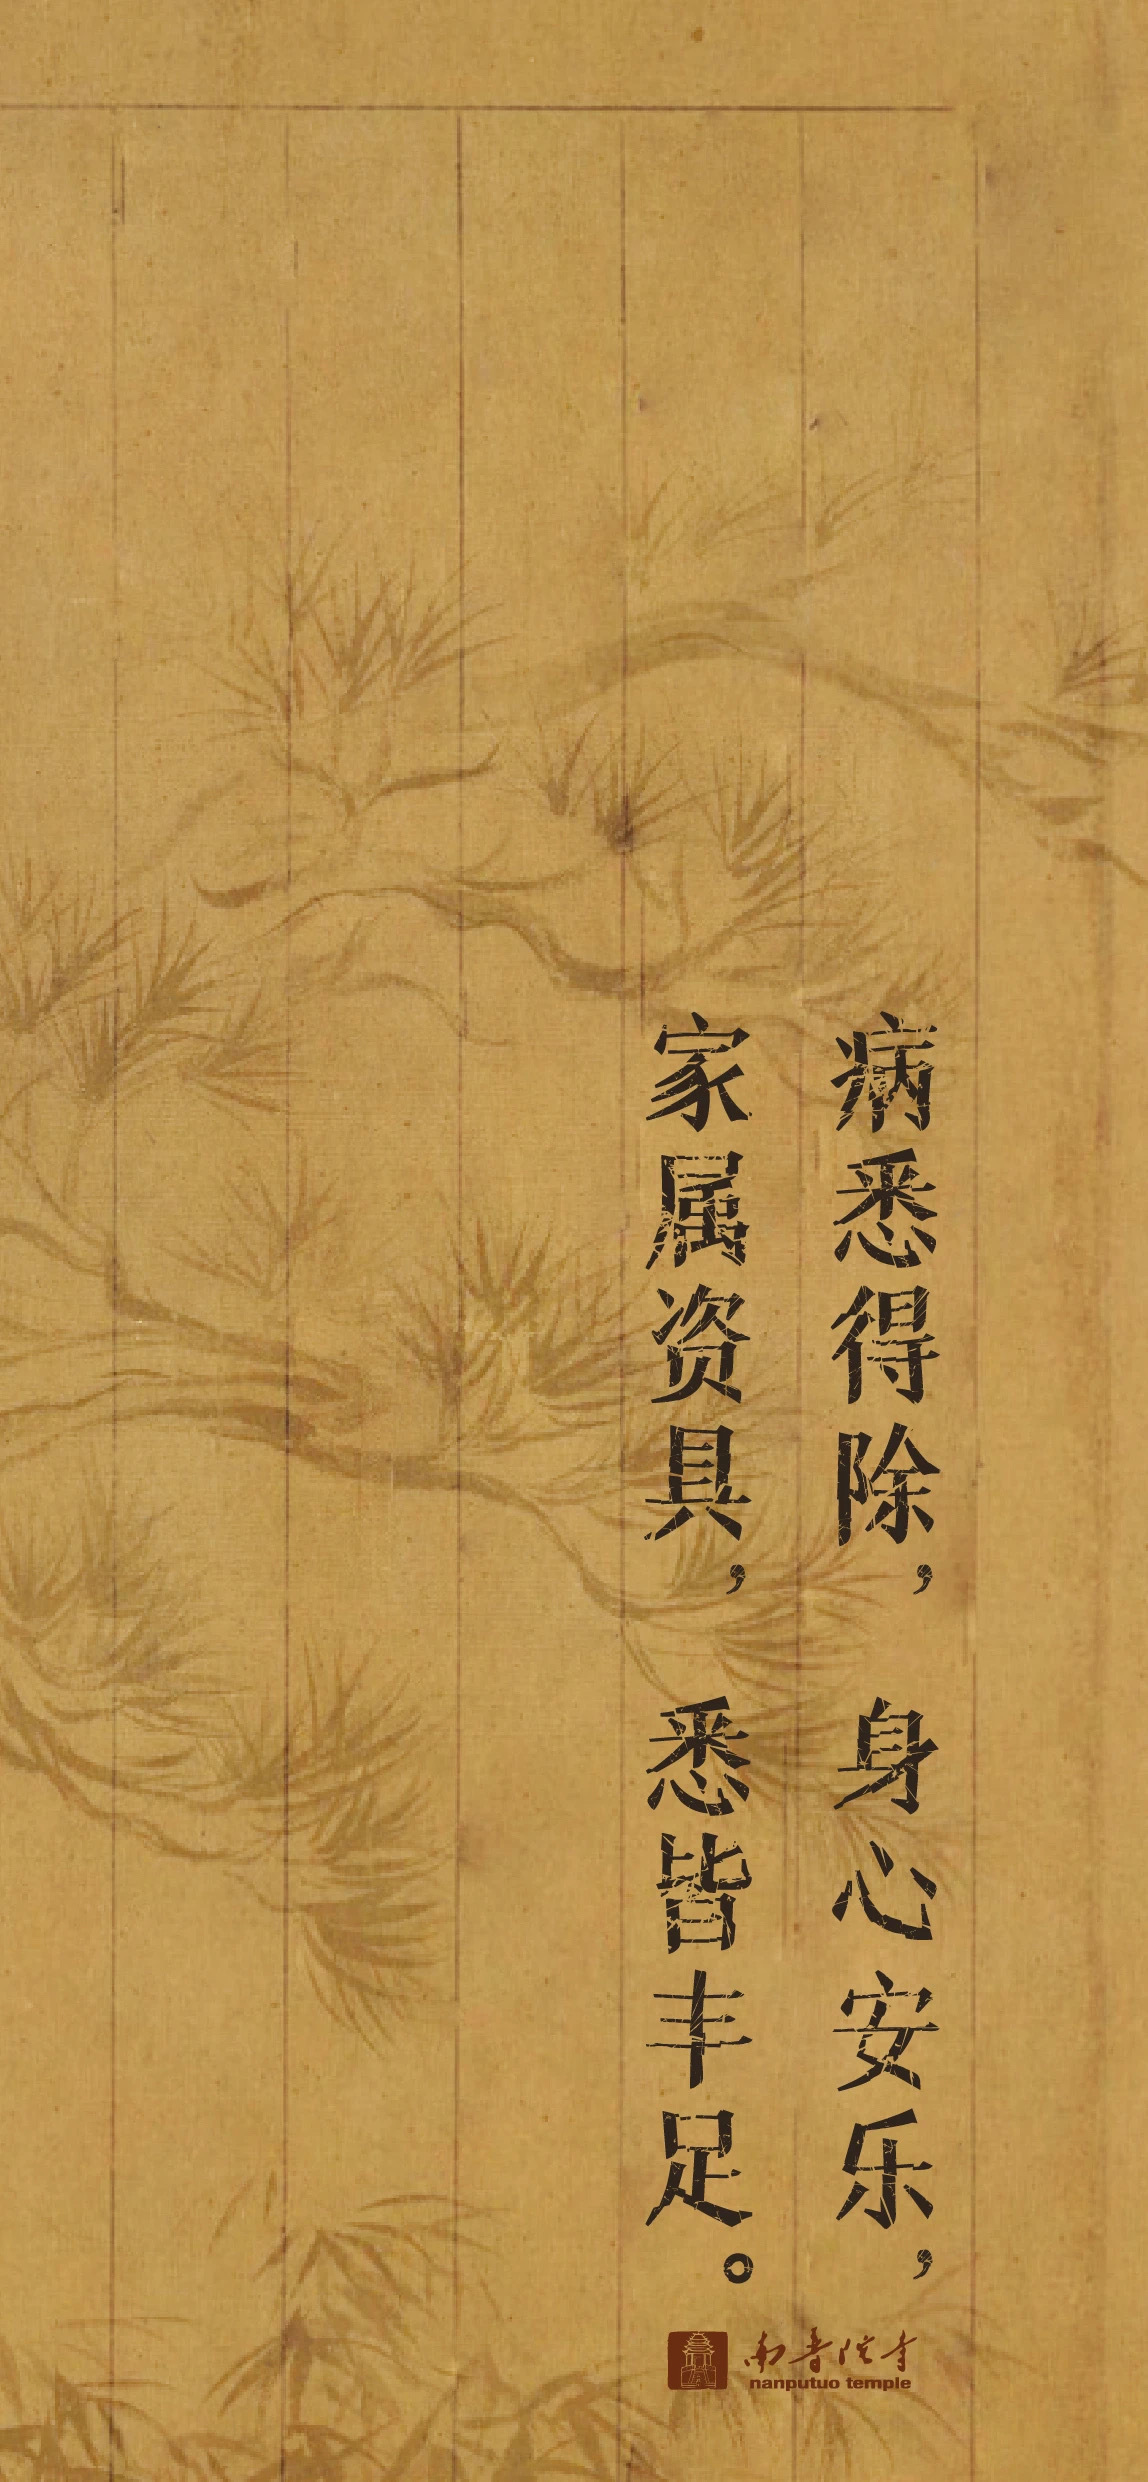 病悉得除，身心安乐，
家属资具，悉皆丰足。
南普陀寺
nanputuo temple